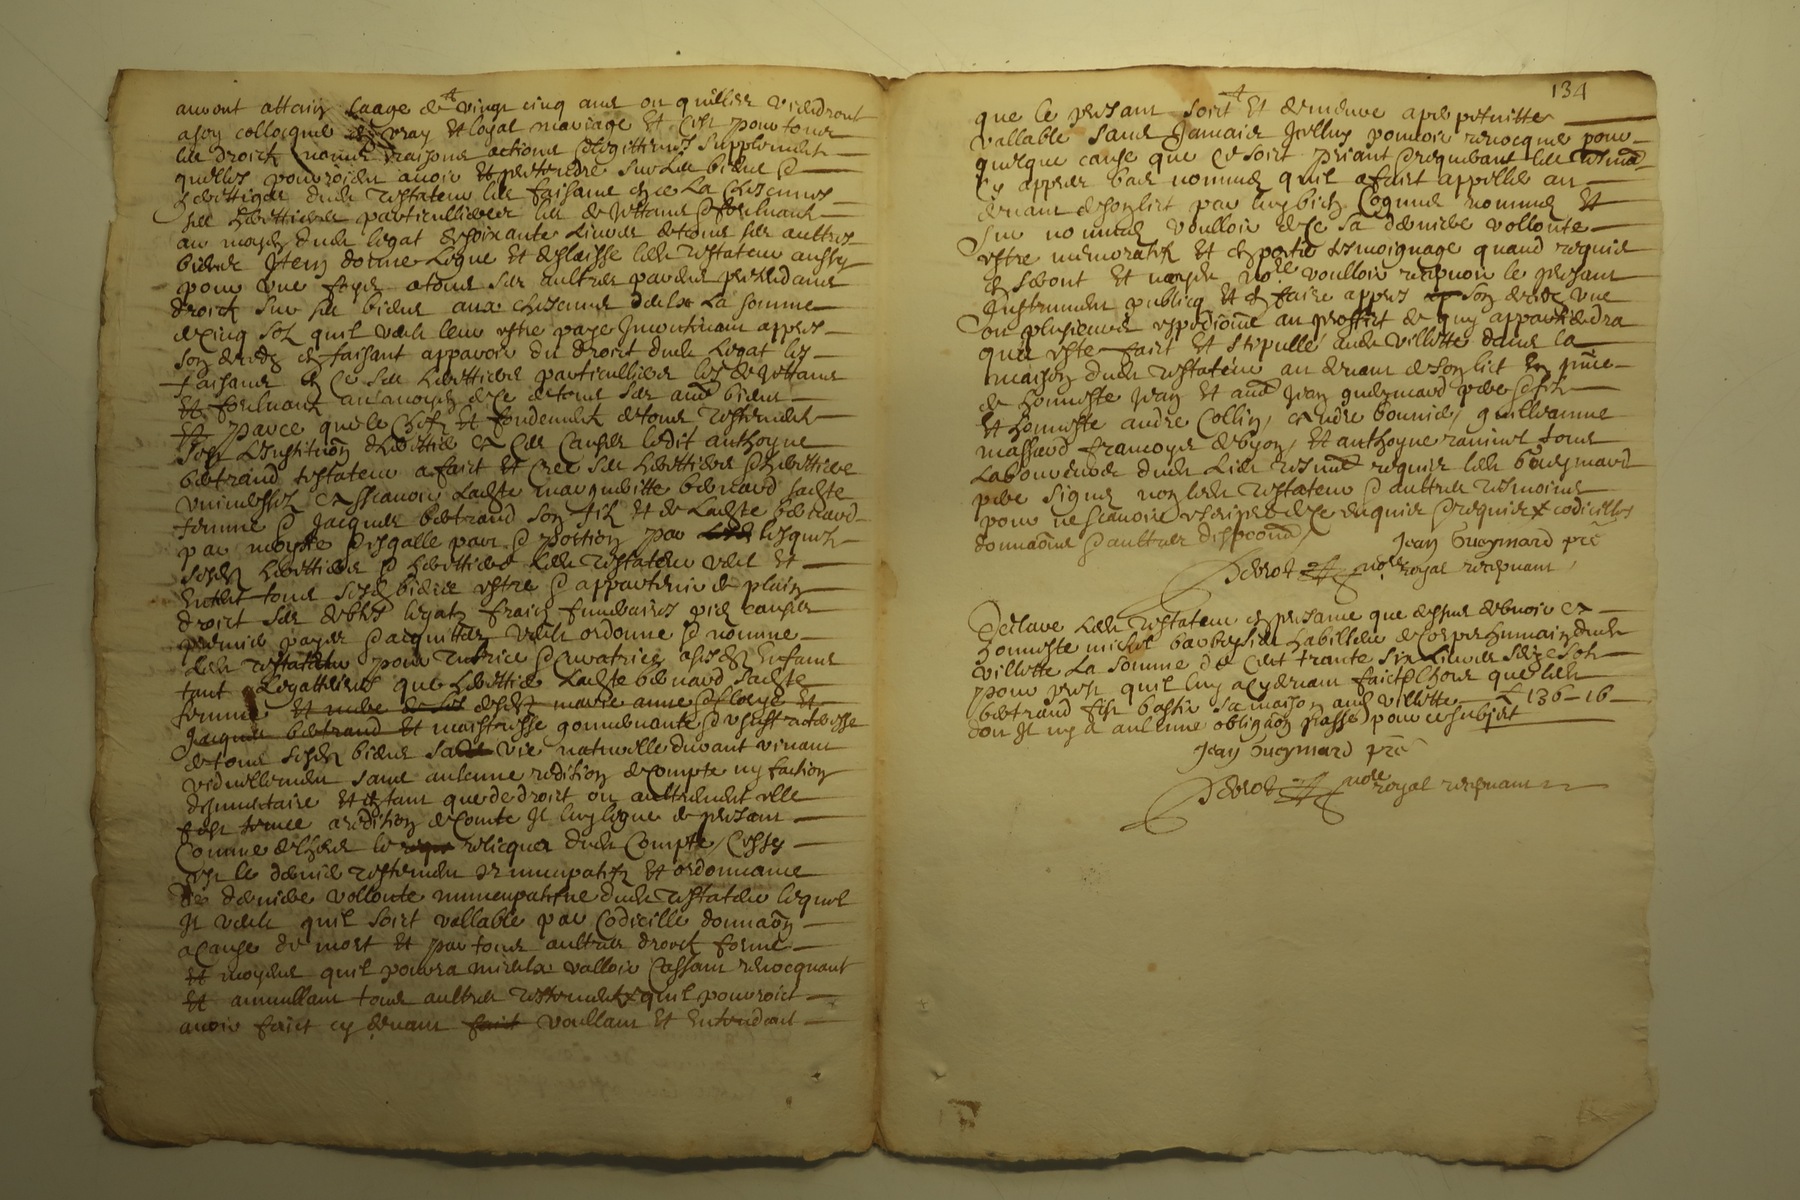 auront attaing laage de vingt cinq ans ou quelles viendront
a soy collocquer en vray et loyal mariage et cest pour tous
les droictz noms raisons actions legittimes supplement
quelles pourroient avoir et pretendre sur les biens et
heretiges dudt testateur les faisant en ce la chescunes
ses herettieres particullieres les dejettant et forcluant
au moyen dudt legat de soixante livres de tous ses aultres
biens Item donne legue et delaisse ledt testateur aussy
pour une foys a tous ses aultres parens pretendans
droict sur ses biens aux chescungs deulx la somme
de cinq solz quil veult leur estre paye incontinant appres
son deces et faisant apparoir du droict dudt legat les
faisant en ce ses herettiers particulliers les dejettant
et forcluant au moyen de ce de tous ses autres biens
Et parce que le chefz et fondement de tous testement
est linstitution dherettier a ces causes ledit anthoyne
bertrand testateur a faict et cree ses herettiers et herettiere
universelz a scavoir ladte margueritte bernard sadte
femme et Jacques bertrand son filz et de ladte bernard
par moytie et esgalle part et portion par lesquelz
sesdz herettiers et herettiere ledt testateur veult et
entend tous sesdz biens estre et appartenir de plain
droict ses debtes legatz fraictz funeraires pies causes
premier payes et acquittes veult ordonne et nomme
ledt testateur pour tutrice et curatrice a sesdz enfans
tant legattaires que herettier ladte bernard sadte
femme et mere de ses desdz marie anne et floryse et
Jacques bertrand et maistresse gouvernante et usufructueresse
de tous sesdz biens sa vie naturelle durant vivant
viduellement sans aulcune redition de compte ny faction
dinventaire et en tant que de droict ou aultrement elle
fest tenue a redition de compte Il luy legue de present
comme dehors le relicqua dudt compte Cestes
est le dernier testement nuncupatifz et ordonnance
de derniere vollonte nuncupative dudt testateur lequel
Il veult quil soict vallable par codicille donnaon
a cause de mort et par tous aultres droict forme
et moyens quil pourra mieulx valloir cassant revocquant
et annullant tous aultres testement quil pourroict
avoir faict cy devant faict voullant et entendant
134
que le present soict et demeure a perpetuitte
vallable sans jamais icelluy pouvoir revocquer pour
quelque cause que ce soict priant et requerant les tesmoings
cy appres bas nommes quil a faict appelles au
devant de son lict par luy bien cognus nommes et
sur nommes voulloir de ce sa derniere vollonte
estre memoratifz et en porter tesmoignage quand requis
en seront et moy dt nore voulloir recepvoir le present
Instrument publicq et en faire appres son deces une
ou plusieurs expedions au proffict de quy appartiendra
que este faict et stipulle audt villotte dans la
maison dudt testateur au devant de son lict en pnce
de honneste Jean et autre Jean gueymard pere et filz
et honneste andre Collin, Andre bonnier, guilleaume
massard francoys debyon, et anthoyne raninel tous
laboureurs dudt lieu tesmoings requis ledt gueymard
pere signe non ledt testateur et aultres tesmoins
pour ne scavoir escripre de ce enquis et requis codicilles
donnaons et aultres dispoons
Jean Gueymard pre
Perrot nore royal recepvant
Declare ledt testateur en presance que dessus debvoir a
honneste michel barbessier habilleur de corps humain dudt
villotte la somme de cent trante six livres seize solz
pour prest quil luy a cy devant faict lhors que ledt
bertrand fist bastir sa maison audt villotte £ 136-16-
dont Il ny a aulcune obligaon passee pour ce subject
Jean Gueymard pre
Perrot nore royal recepvant